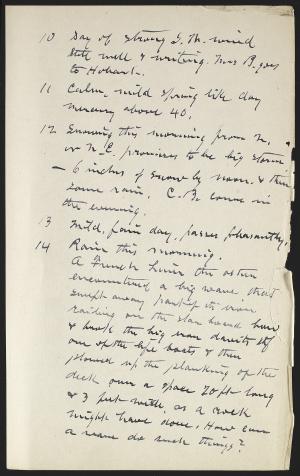 10 Day of strong S. W. wind
Still well & writing. Mrs B. goes
to Hobart.
11 Calm, mild spring like day
mercury above 40.
12 Snowing this morning from N.
or N. E. promises to be big storm
— 6 inches of snow by noon & then
some rain. C. B. comes in
the evening.
13 Mild, fair day, passes pleasantly.
14 Rain this morning.
A French Liner the
encountered a big wave that
swept away part of the iron
railing on the star board bow
& broke the big iron davits of
one of the life boats & then
plowed up the planking of the
deck over a space 20 ft long
& 3 feet wide, as a rock
might have done. How can
a wave do such things?